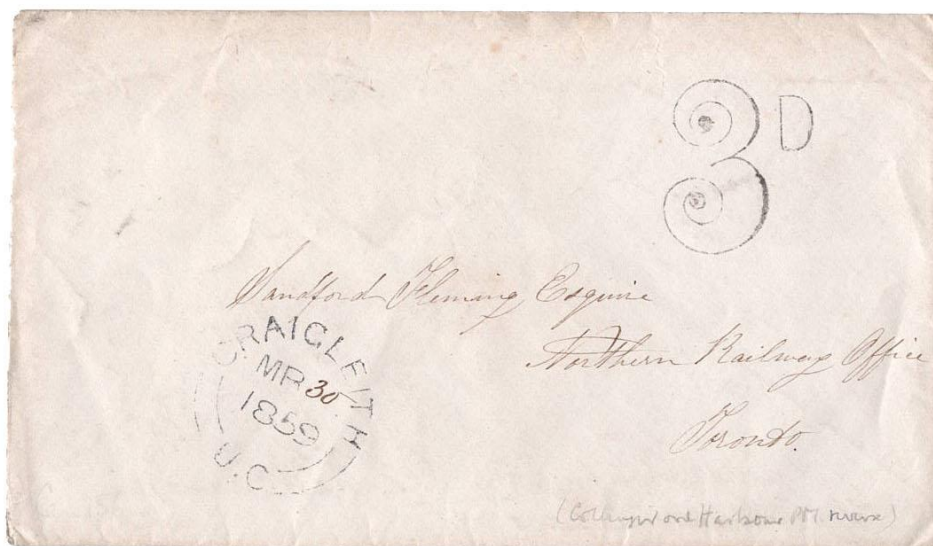 3D
Sandford Fleming Esquire
Northern Railway Office
Toronto.
CRAIGLEITH
MR 30
1859
U.C
(Collingwood Harbour PM reverse)